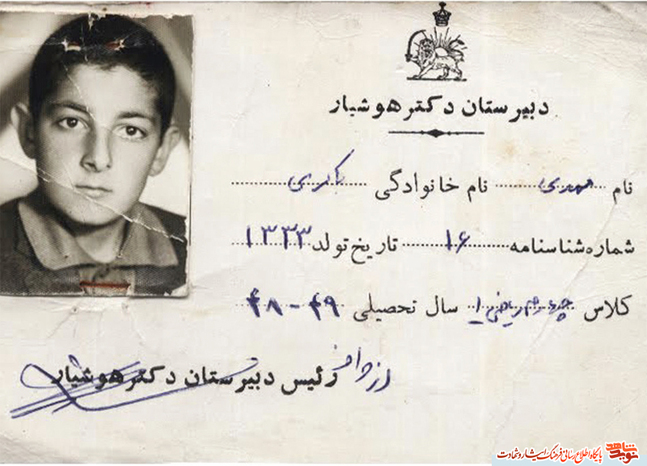 دبیرستان دکتر هوشیار
نام مهدی نام خانوادگی باکری
شماره شناسنامه ۱۶ تاریخ تولد ۱۳۳۳
کلاس چهارم ریاضی ۱ سال تحصیلی ۴۹-۴۸
رئیس دبیرستان دکتر هوشیار
نوید شاهد
پایگاه اطلاع رسانی فرهنگ ایثار و شهادت